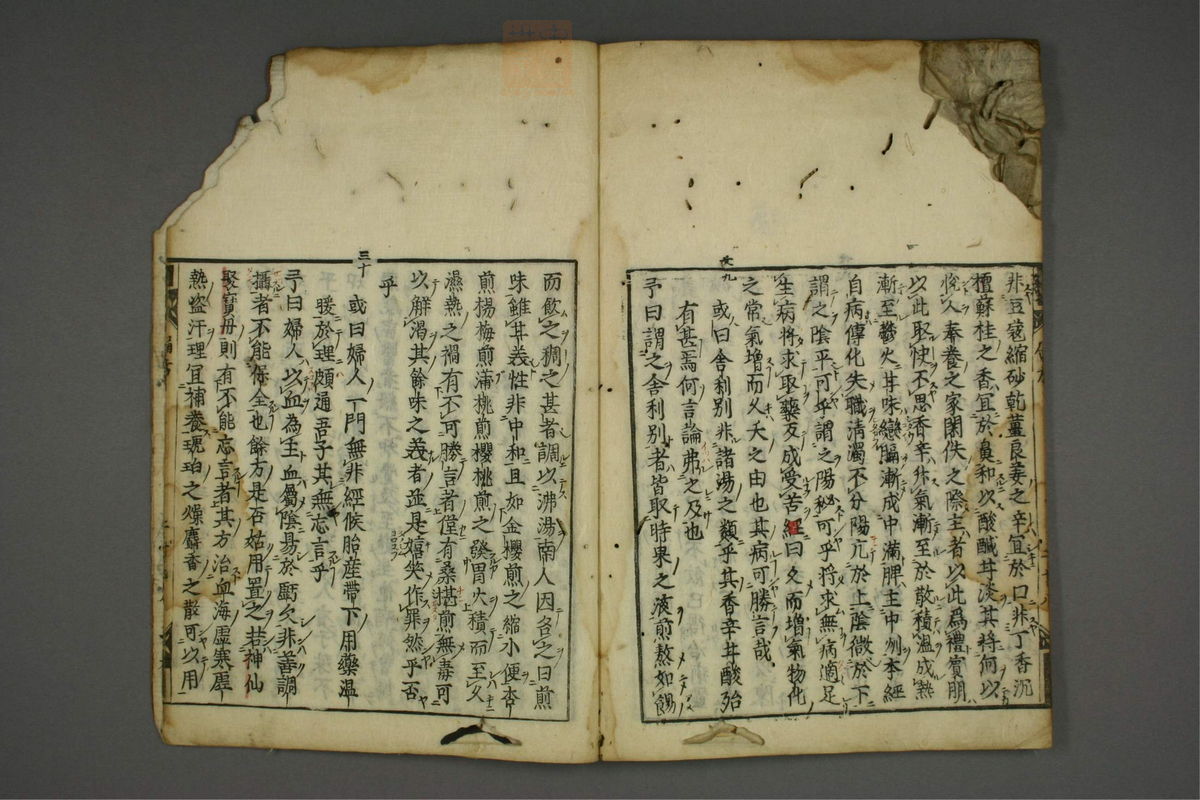 非豆蔻縮砂乾薑良姜之辛宜於口非丁香沉
檀蘇桂之香宜於鼻和以酸醎甘淡其將何以
悅人奉養之家閑佚之際主者以此為禮賓朋
以此取快不思香辛升氣漸至於散積温成熱
漸至鬱火甘味戀膈漸成中滿脾主中州本經
自病傳化失職清濁不分陽亢於上陰微於下
謂之陰平可乎謂之陽秘可乎將求無病適足
生病將求取藥反成受苦經曰久而增氣物化
之常氣增而久夭之由也其病可勝言哉
或曰舍利別非諸湯之類乎其香辛甘酸殆
有甚焉何言論弗之及也
予曰謂之舍利別者皆取時果之液煎熬如餳
廿九
而飲之稠之甚者調以沸湯南人因名之曰煎
味雖甘美性非中和且如金櫻煎之縮小便杏
煎楊梅煎蒲桃煎櫻桃煎之發胃火積而至久
濕熱之禍有不可勝言者僅有桑椹煎無毒可
以解渴其餘味之美者並是嬉笑作罪然乎否
乎
三十
或曰婦人一門無非經候胎産帶下用藥温
暖於理頗通吾子其無忘言乎
予曰婦人以血為主血屬陰易於虧欠非善調
攝者不能保全也餘方是否姑用置之若神仙
聚寶丹則有不能忘言者其方治血海虛寒虛
熱盗汗理宜補養琥珀之燥麝香之散可以用